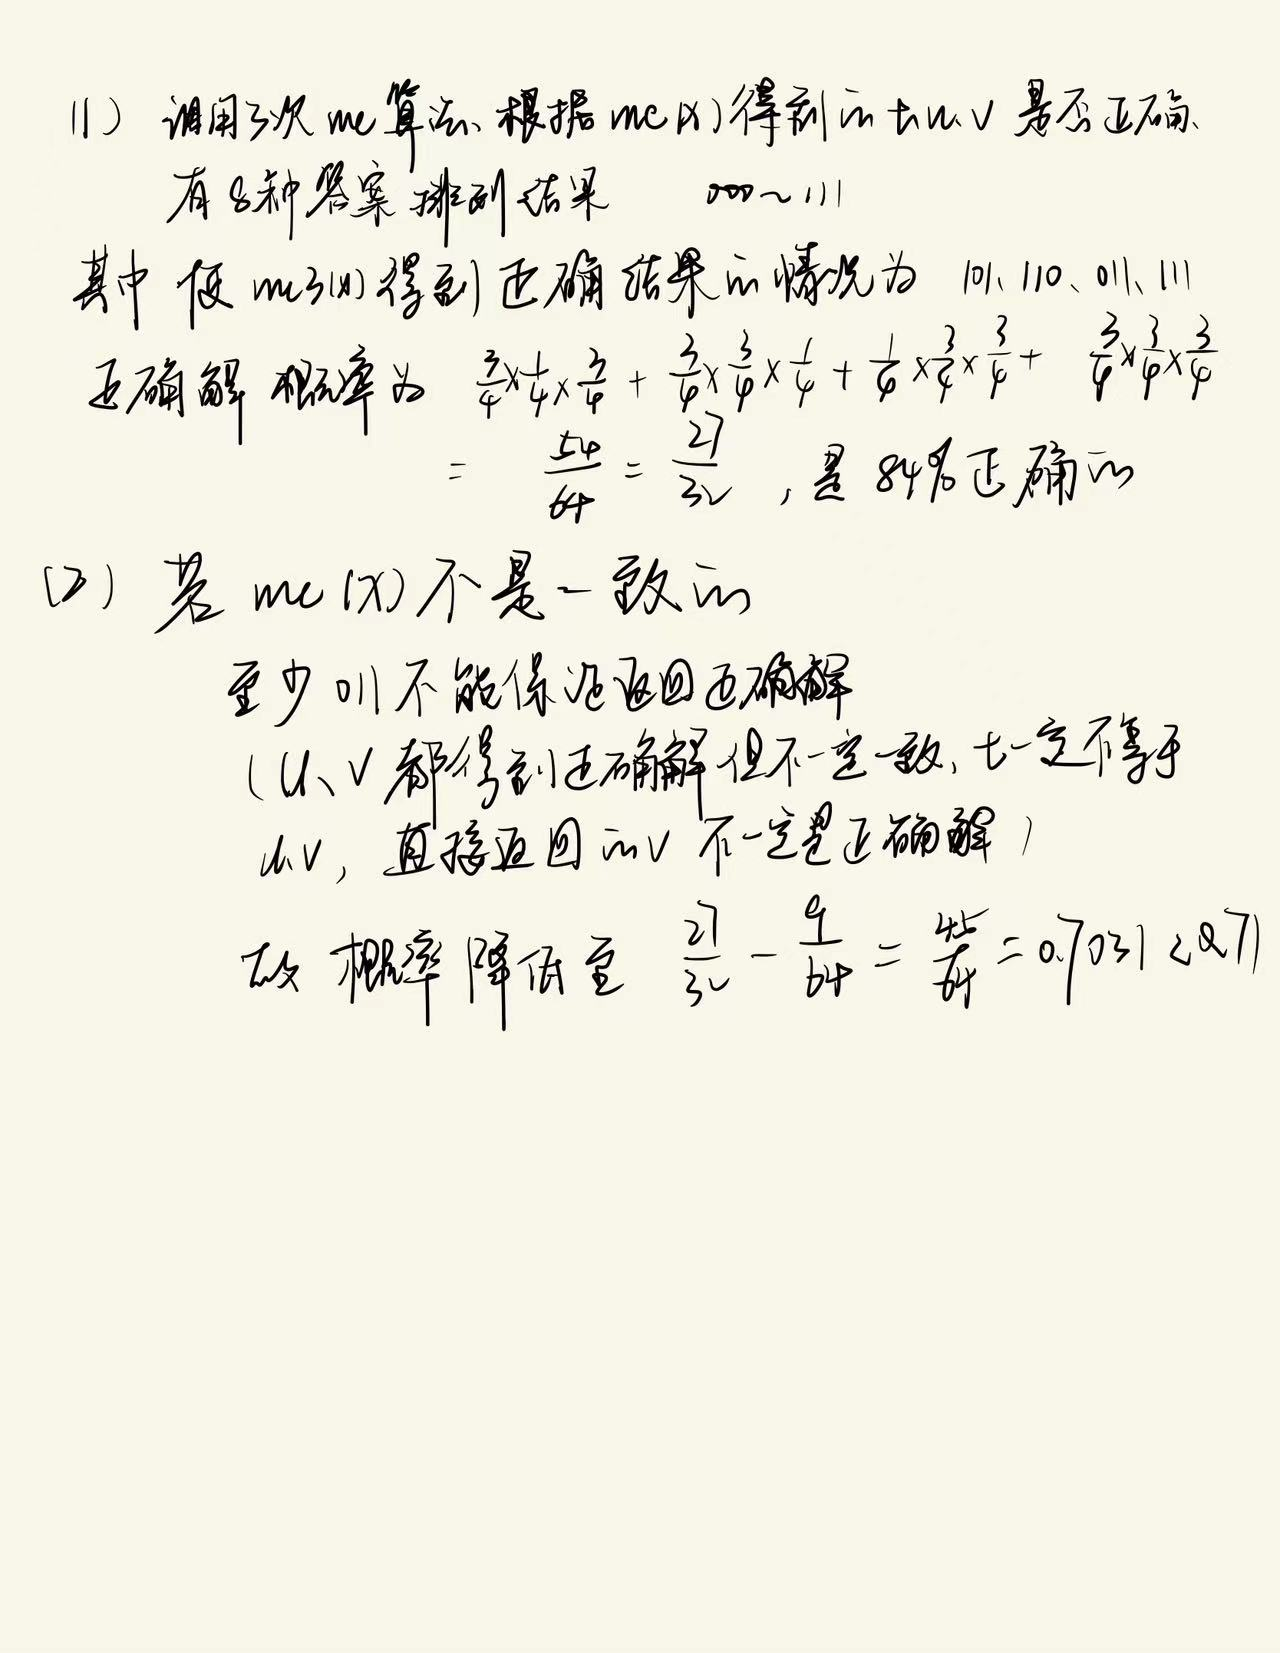 (1) 调用3次mc算法、根据mc(x)得到的t、u、v是否正确、
有8种答案排列结果 000~111
其中使mc3(x)得到正确结果的情况为 101、110、011、111
正确解概率为 3/4×1/4×3/4 + 3/4×3/4×1/4 + 1/4×3/4×3/4 + 3/4×3/4×3/4
= 54/64 = 27/32 , 是84%正确的
(2) 若mc(x)不是一致的
至少011不能保证返回正确解
(u、v都得到正确解但不一定一致, t一定不等于
u、v, 直接返回的v不一定是正确解)
故概率降低至 27/32 - 9/64 = 45/64 = 0.7031 < 0.71